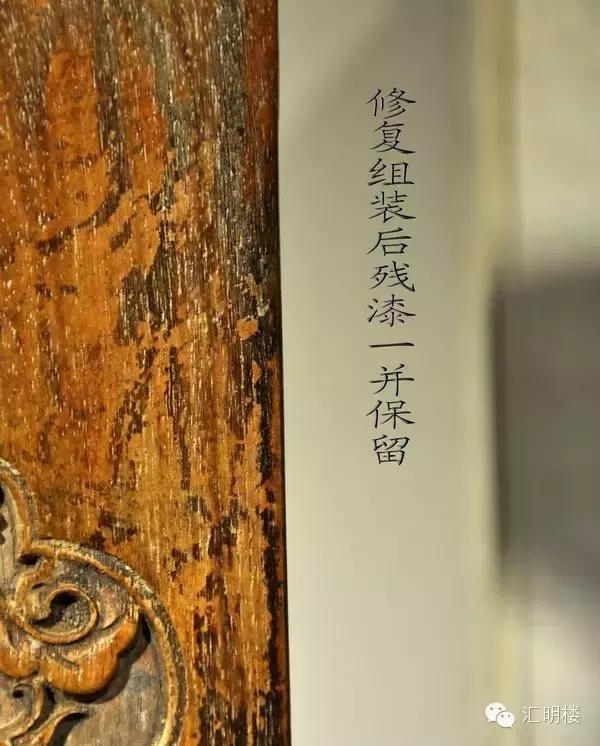 修复组装后残漆一并保留
汇明楼